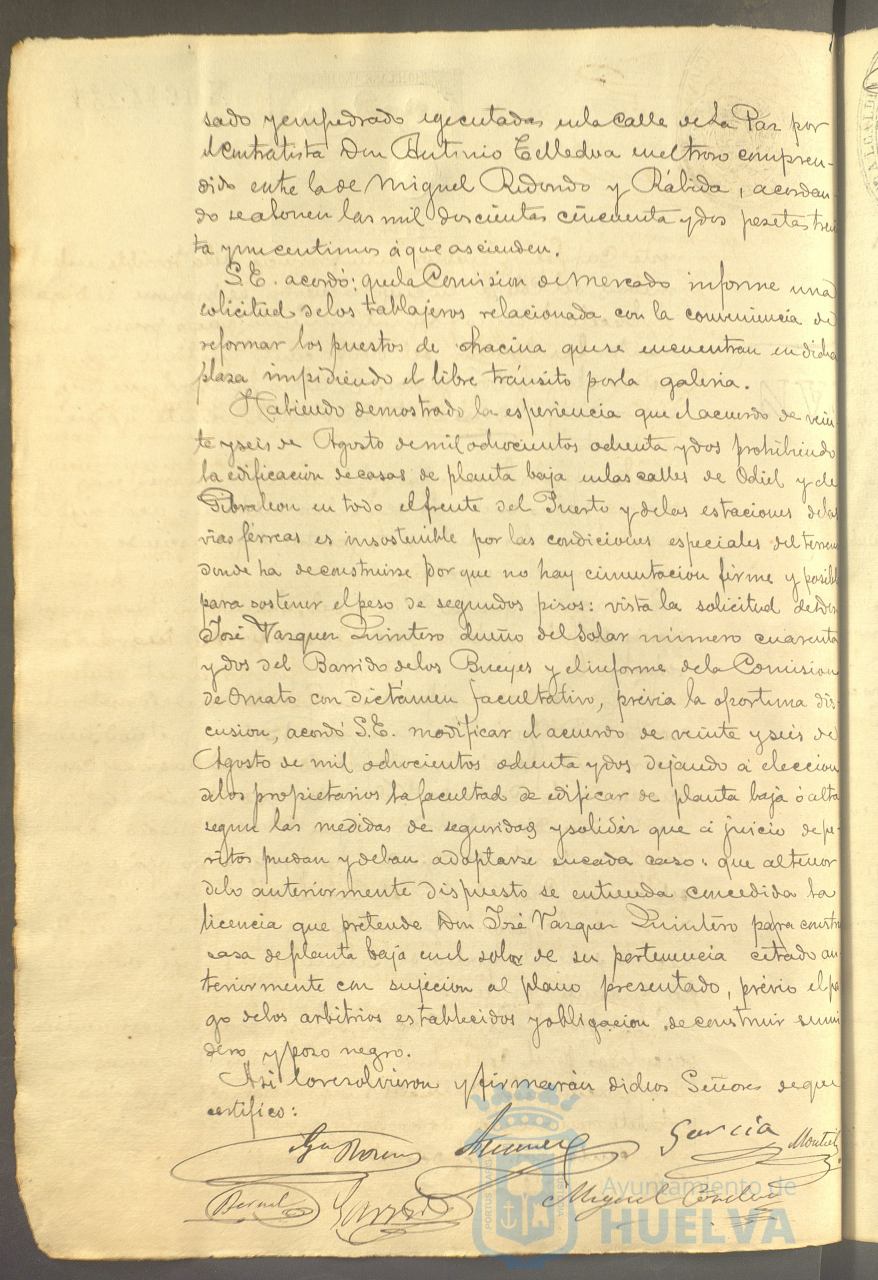 sado y empedrado egecutadas en la calle de La Paz por
el contratista Don Antonio en el trozo compren-
dido entre la de Miguel Redondo y Rábida, acordan-
do se abonen las mil doscientas cincuenta y dos pesetas trein
ta y un centimos á que ascienden.
S.E. acordó: que la Comision de Mercado informe una
solicitud de los tablajeros relacionada con la conveniencia de
reformar los puestos de chacina que se encuentran en dicha
plaza impidiendo el libre tránsito por la galeria.
Habiendo demostrado la esperiencia que el acuerdo de vein
te y seis de Agosto de mil ochocientos ochenta y dos prohibiendo
la edificacion de casas de planta baja en las calles de Odiel y de
Gibraleon en todo el frente del Puerto y de las estaciones de las
vias férreas es insostenible por las condiciones especiales del terreno
donde ha de construirse por que no hay cimentacion firme y posible
para sostener el peso de segundos pisos: vista la solicitud de Don
José Vazquez Quintero dueño del Solar número cuarenta
y dos del Barrido de los Bueyes y el informe de la Comision
de Ornato con dictámen facultativo, prévia la oportuna dis-
cusion, acordó S.E. modificar el acuerdo de veinte y seis de
Agosto de mil ochocientos ochenta y dos dejando á eleccion
de los propietarios la facultad de edificar de planta baja ó alta
segun las medidas de seguridad y solidéz que á juicio de pe-
ritos puedan y deban adoptarse en cada caso: que al tenor
de lo anteriormente dispuesto se entienda concedida la
licencia que pretende Don José Vazquez Quintero para constr
casa de planta baja en el solar de su pertenencia citado an
teriormente con sujecion al plano presentado, prévio el pa
go de los arbitrios establecidos y obligacion de construir sumi
dero y pozo negro.
Asi lo resolvieron y firmarán dichos Señores de que
certifico:
García Montiel
Bernal Garrido Miguel
Ayuntamiento de
HUELVA